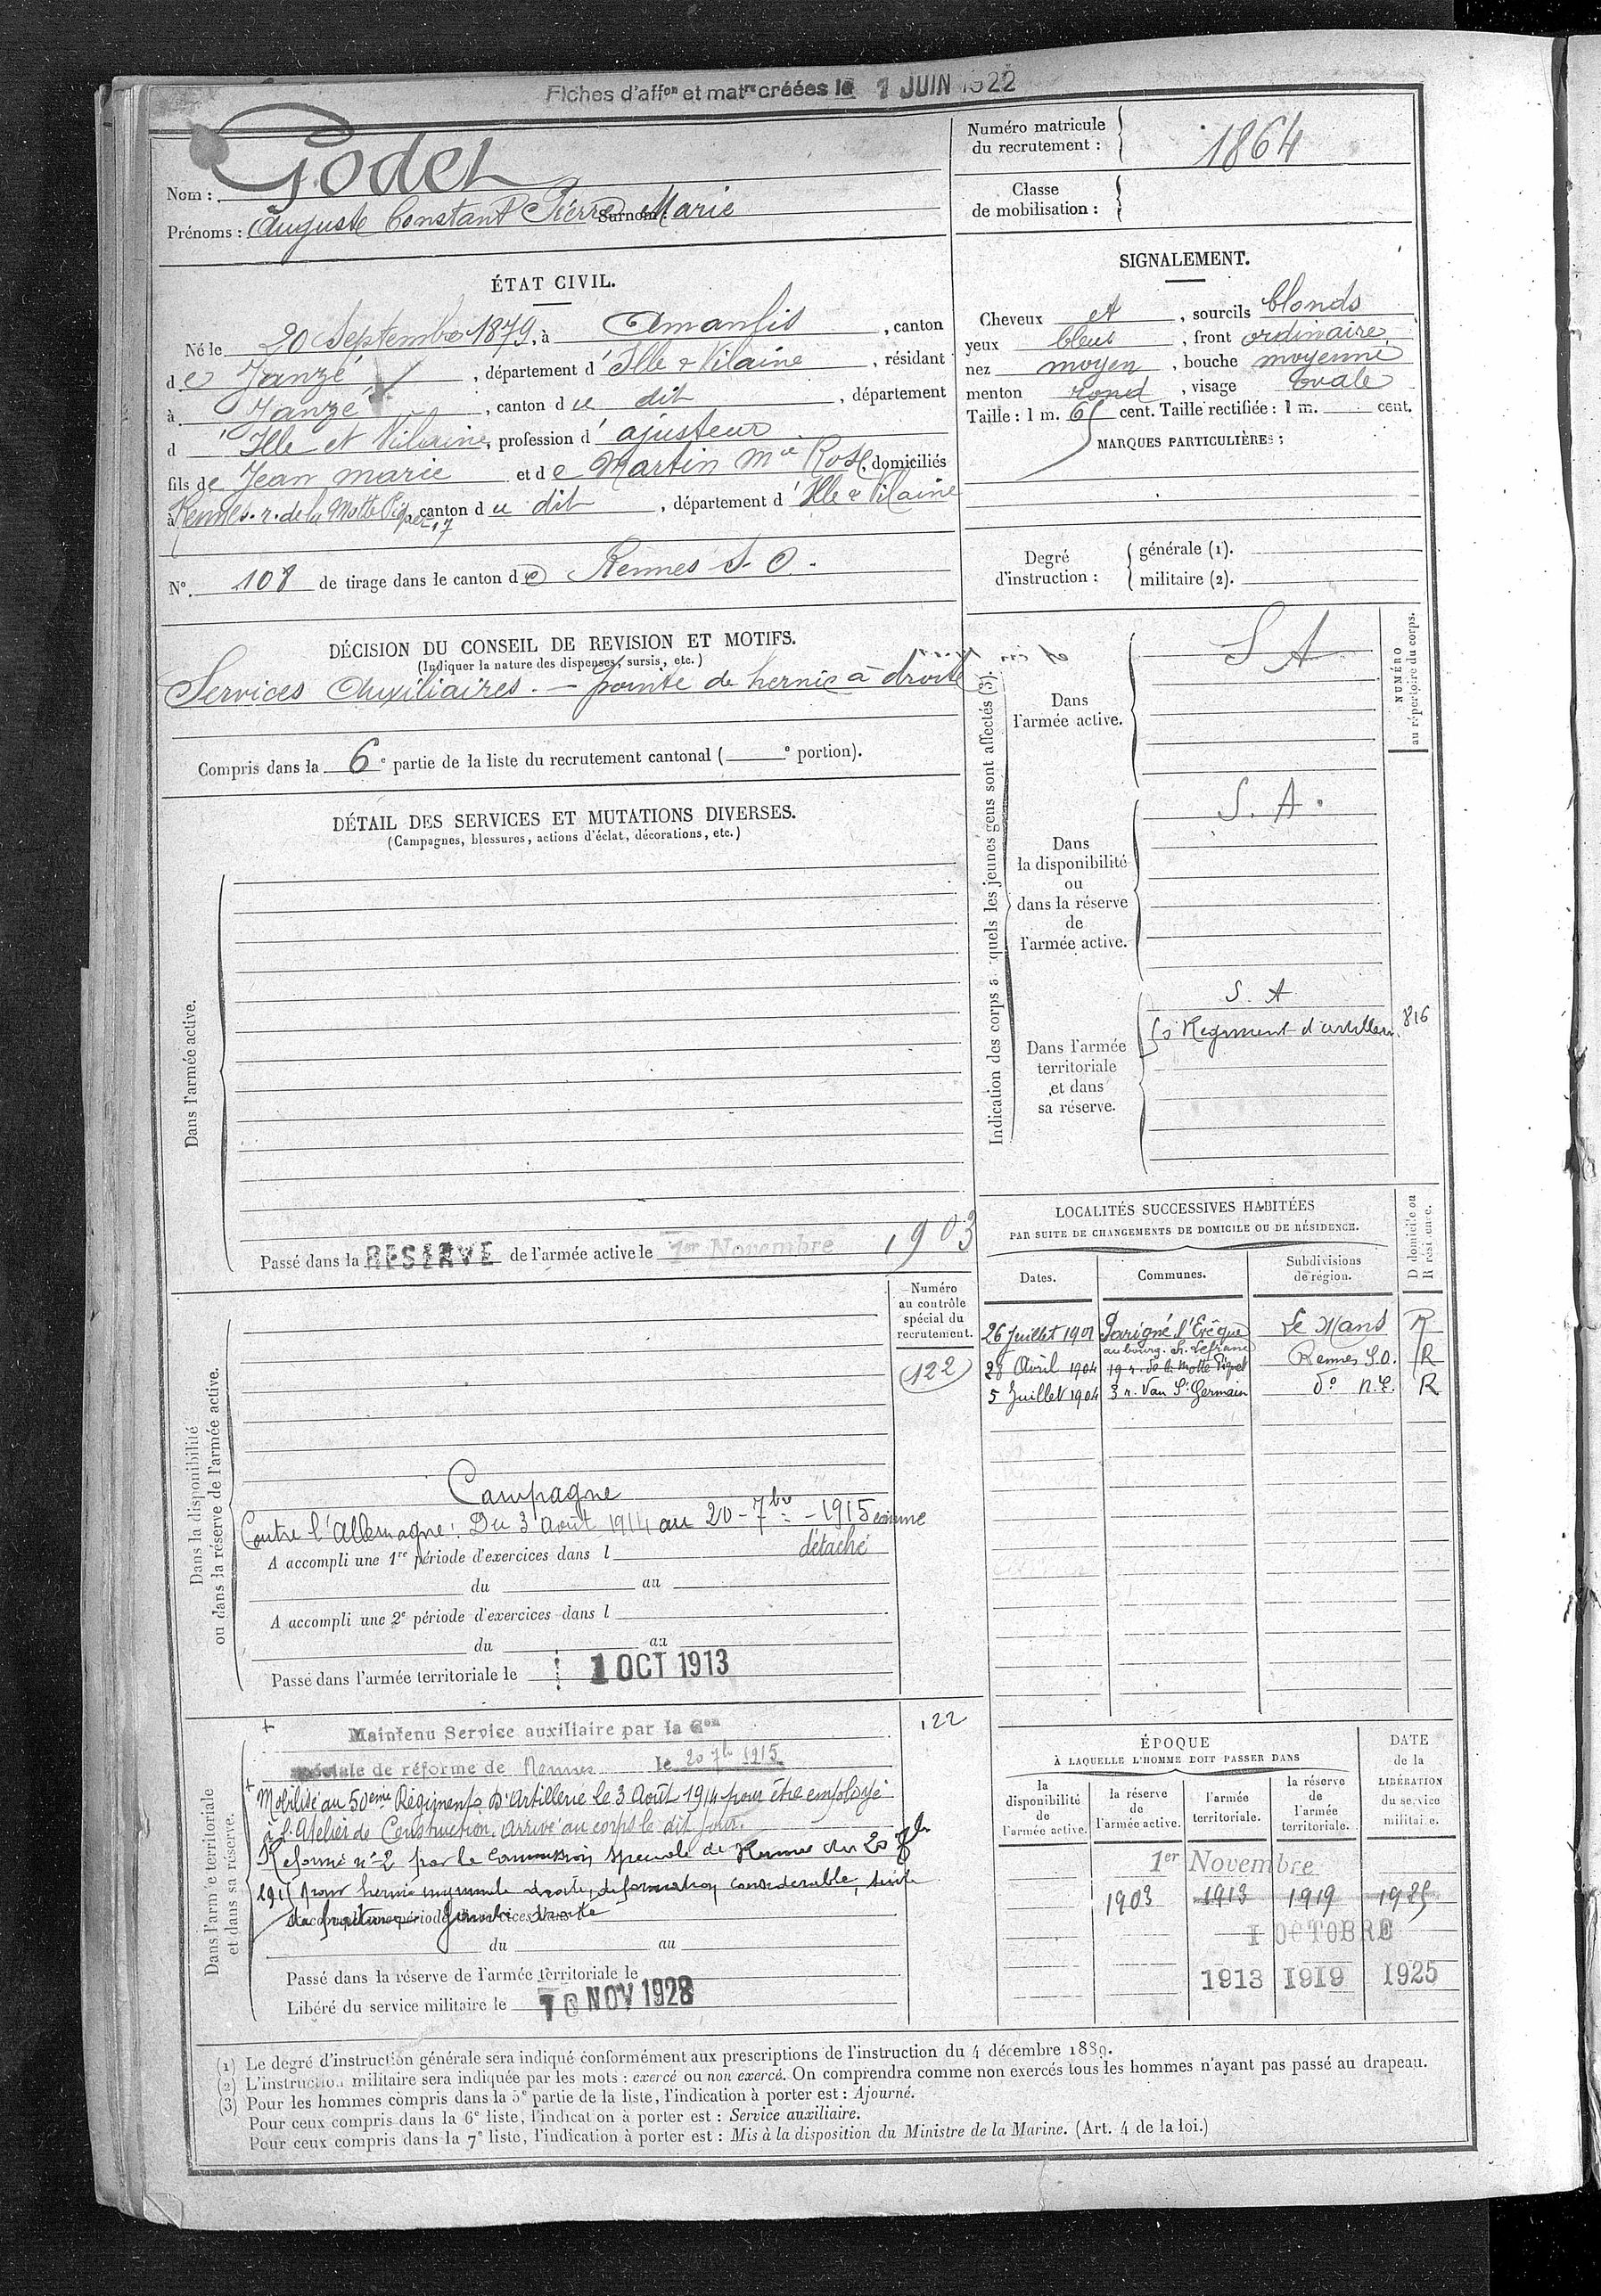 Fiches d'affon et matre créées le 1 JUIN 1922
Nom : Godet
Prénoms : Auguste Constant Pierre Marie Surnom :
Numéro matricule du recrutement : 1864
Classe de mobilisation :
ÉTAT CIVIL.
Né le 20 Septembre 1879, à Amanlis, canton
de Janzé, département d'Ille & Vilaine, résidant
à Janzé, canton du dit, département
d'Ille et Vilaine, profession d'ajusteur
fils de Jean Marie et de Martin Mie Rose, domiciliés
à Rennes. r. de la Motte Piquet, 17 canton du dit, département d'Ille & Vilaine
N° 108 de tirage dans le canton de Rennes S. O.
SIGNALEMENT.
Cheveux et, sourcils blonds
yeux bleus, front ordinaire
nez moyen, bouche moyenne
menton rond, visage ovale
Taille : 1 m. 65 cent. Taille rectifiée : 1 m. cent.
MARQUES PARTICULIÈRES :
Degré d'instruction : générale (1). militaire (2).
DÉCISION DU CONSEIL DE REVISION ET MOTIFS.
(Indiquer la nature des dispenses, sursis, etc.)
Services Auxiliaires. — pointe de hernie à droite
Compris dans la 6e partie de la liste du recrutement cantonal ( e portion).
DÉTAIL DES SERVICES ET MUTATIONS DIVERSES.
(Campagnes, blessures, actions d'éclat, décorations, etc.)
Dans l'armée active.
Passé dans la RESERVE de l'armée active le 1er Novembre 1903
Indication des corps auxquels les jeunes gens sont affectés (3).
NUMÉRO au répertoire du corps.
Dans l'armée active.
S A
Dans la disponibilité ou dans la réserve de l'armée active.
S. A.
Dans l'armée territoriale et dans sa réserve.
S. A
Régiment d'artillerie 816
LOCALITÉS SUCCESSIVES HABITÉES
PAR SUITE DE CHANGEMENTS DE DOMICILE OU DE RÉSIDENCE.
Dates. Communes. Subdivisions de région. D domicile ou R résidence.
26 Juillet 1901 Parigné l'Evêque Le Mans R
au bourg. ch. Lefranc
28 Avril 1904 19 r. de la Motte Piquet Rennes S.O. R
5 Juillet 1904 3 r. Vau St Germain do N.E. R
Dans la disponibilité ou dans la réserve de l'armée active.
Numéro au contrôle spécial du recrutement.
122
Campagne
Contre l'Allemagne : Du 3 Août 1914 au 20 - 7bre - 1915 comme
détaché
A accompli une 1re période d'exercices dans l
du au
A accompli une 2e période d'exercices dans l
du au
Passé dans l'armée territoriale le 1 OCT 1913
Dans l'armée territoriale et dans sa réserve.
122
Maintenu Service auxiliaire par la Con
spéciale de réforme de Rennes le 20 7bre 1915
Mobilisé au 50ème Régiment d'Artillerie le 3 Août 1914 pour être employé
à l'Atelier de Construction. Arrivé au corps le dit jour.
Réformé n° 2 par la Commission spéciale de Rennes du 20 7bre
1915 pour hernie inguinale droite, déformation considérable, suite
de fracture jambe droite
du au
Passé dans la réserve de l'armée territoriale le
Libéré du service militaire le 10 NOV 1928
ÉPOQUE
À LAQUELLE L'HOMME DOIT PASSER DANS
la disponibilité de l'armée active. la réserve de l'armée active. l'armée territoriale. la réserve de l'armée territoriale.
DATE de la LIBÉRATION du service militaire.
1er Novembre
1903 1913 1919 1925
1 OCTOBRE
1913 1919 1925
(1) Le degré d'instruction générale sera indiqué conformément aux prescriptions de l'instruction du 4 décembre 1889.
(2) L'instruction militaire sera indiquée par les mots : exercé ou non exercé. On comprendra comme non exercés tous les hommes n'ayant pas passé au drapeau.
(3) Pour les hommes compris dans la 5e partie de la liste, l'indication à porter est : Ajourné.
Pour ceux compris dans la 6e liste, l'indication à porter est : Service auxiliaire.
Pour ceux compris dans la 7e liste, l'indication à porter est : Mis à la disposition du Ministre de la Marine. (Art. 4 de la loi.)